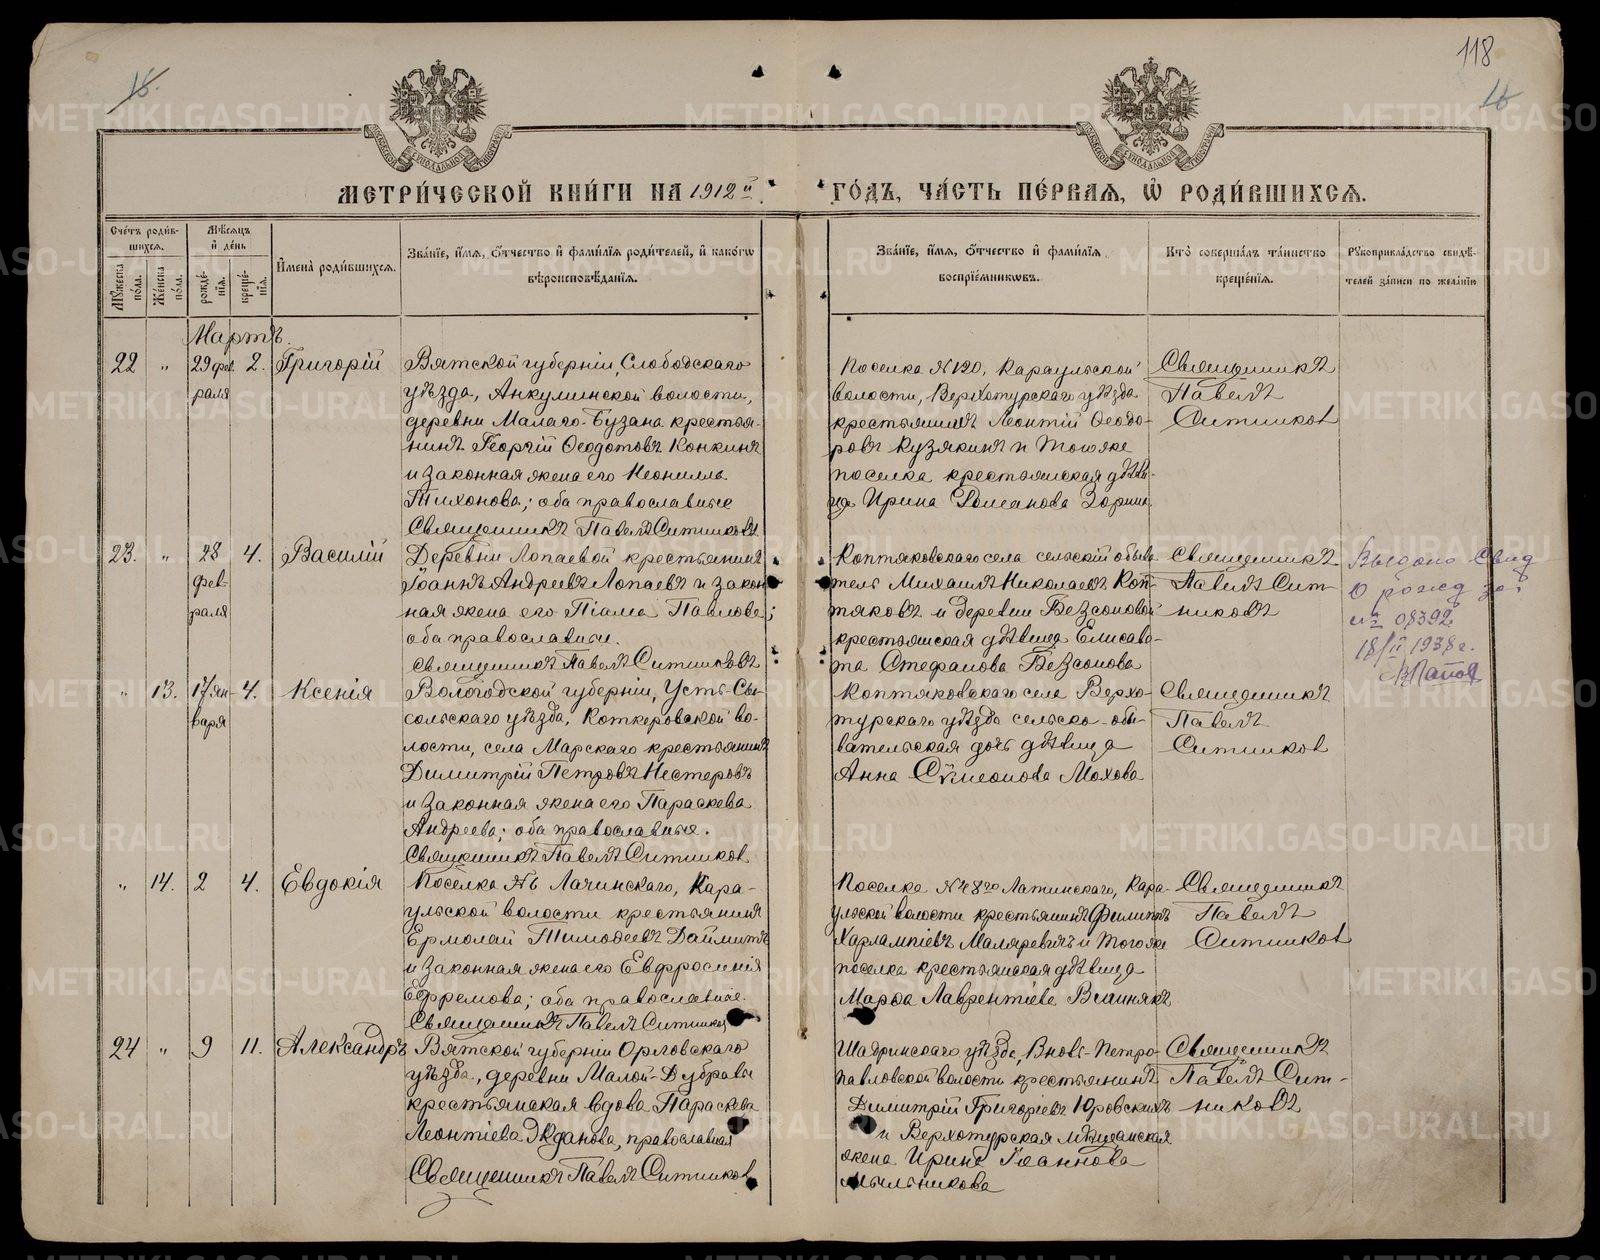 118
16.
16
МЕТРИ́ЧЕСКОЙ КНИ́ГИ НА 1912й ГО́ДЪ, ЧА́СТЬ ПЕ́РВАѦ, Ѡ҆ РОДИ́ВШИХСѦ.
Счетъ роди́в-
шихсѧ.
Мѣ́сѧцъ
и҆ де́нь
И҆мена̀ роди́вшихсѧ.
Зва́нїе, и҆́мѧ, ѻ҆́тчество и҆ фами́лїѧ роди́телей, и҆ како́гѡ
вѣроисповѣ́данїѧ.
Зва́нїе, и҆́мѧ, ѻ҆́тчество и҆ фами́лїѧ
воспрїе́мникѡвъ.
Кто̀ соверша́лъ та́инство
креще́нїѧ.
Рꙋкоприкла́дство свидѣ́-
телей за́писи по жела́нїю
Мꙋ́жеска
по́ла.
Же́нска
по́ла.
рожде́-
нїѧ.
креще́-
нїѧ.
Мартъ.
22 " 29 фев 2. Григорій
раля
Вятской губерніи, Слободскаго
уѣзда, Анкушинской волости,
деревни Малаго-Бузана крестья-
нинъ Георгій Ѳеодотовъ Конкинъ
и законная жена его Неонилла
Тихонова; оба православные
Священникъ Павелъ Ситниковъ
Поселка №120, Караульской
волости, Верхотурскаго уѣзда
крестьянинъ Леонтій Ѳеодо-
ровъ Кузякинъ и тогоже
поселка крестьянская дѣви-
ца Ирина Романова Зорина
Священникъ
Павелъ
Ситников
23. " 28 4. Василій
фев-
раля
Деревни Лопаевой крестьянинъ
Іоаннъ Андреевъ Лопаевъ и закон
ная жена его Піама Павлова;
оба православные.
Священникъ Павелъ Ситниковъ
Коптяковскаго села сельскій обыва-
тель Михаилъ Николаевъ Коп-
тяковъ и деревни Безсоновой
крестьянская дѣвица Елисаве-
та Стефанова Безсонова
Священникъ
Павелъ Сит-
никовъ
Выдано Свид
О рожд за
№ 08392
18/II 1938 г.
" 13. 17 ян- 4. Ксенія
варя
Вологодской губерніи, Усть-Сы-
сольскаго уѣзда, Коткеровской во-
лости, села Марскаго крестьянинъ
Димитрій Петровъ Нестеровъ
и законная жена его Параскева
Андреева; оба православные.
Священникъ Павелъ Ситников
Коптяковскаго села Верхо-
турскаго уѣзда сельско-обы-
вательская дочь дѣвица
Анна Симеонова Мохова
Священникъ
Павелъ
Ситников
" 14. 2 4. Евдокія
Поселка № Лачинскаго, Кара-
ульской волости крестьянинъ
Ермолай Тимоѳеевъ Даймитъ
и законная жена его Евфросинія
Ефремова; оба православные.
Священникъ Павелъ Ситников
Поселка № Латинскаго, Кара-
ульской волости крестьянинъ Филиппъ
Харлампіевъ Маляревичъ и тогоже
поселка крестьянская дѣвица
Марѳа Лаврентіева
Священникъ
Павелъ
Ситников
24 " 9 11. Александръ
Вятской губерніи Орловскаго
уѣзда, деревни Малой-Дубравы
крестьянская вдова Параскева
Леонтіева Жданова, православная
Священникъ Павелъ Ситников
Шадринскаго уѣзда, Вновь-Петро-
павловской волости крестьянинъ
Димитрій Григоріевъ Юровскихъ
и Верхотурская мѣщанская
жена Ирина Іоаннова
Мыльникова
Священникъ
Павелъ Сит-
никовъ
METRIKI.GASO-URAL.RU